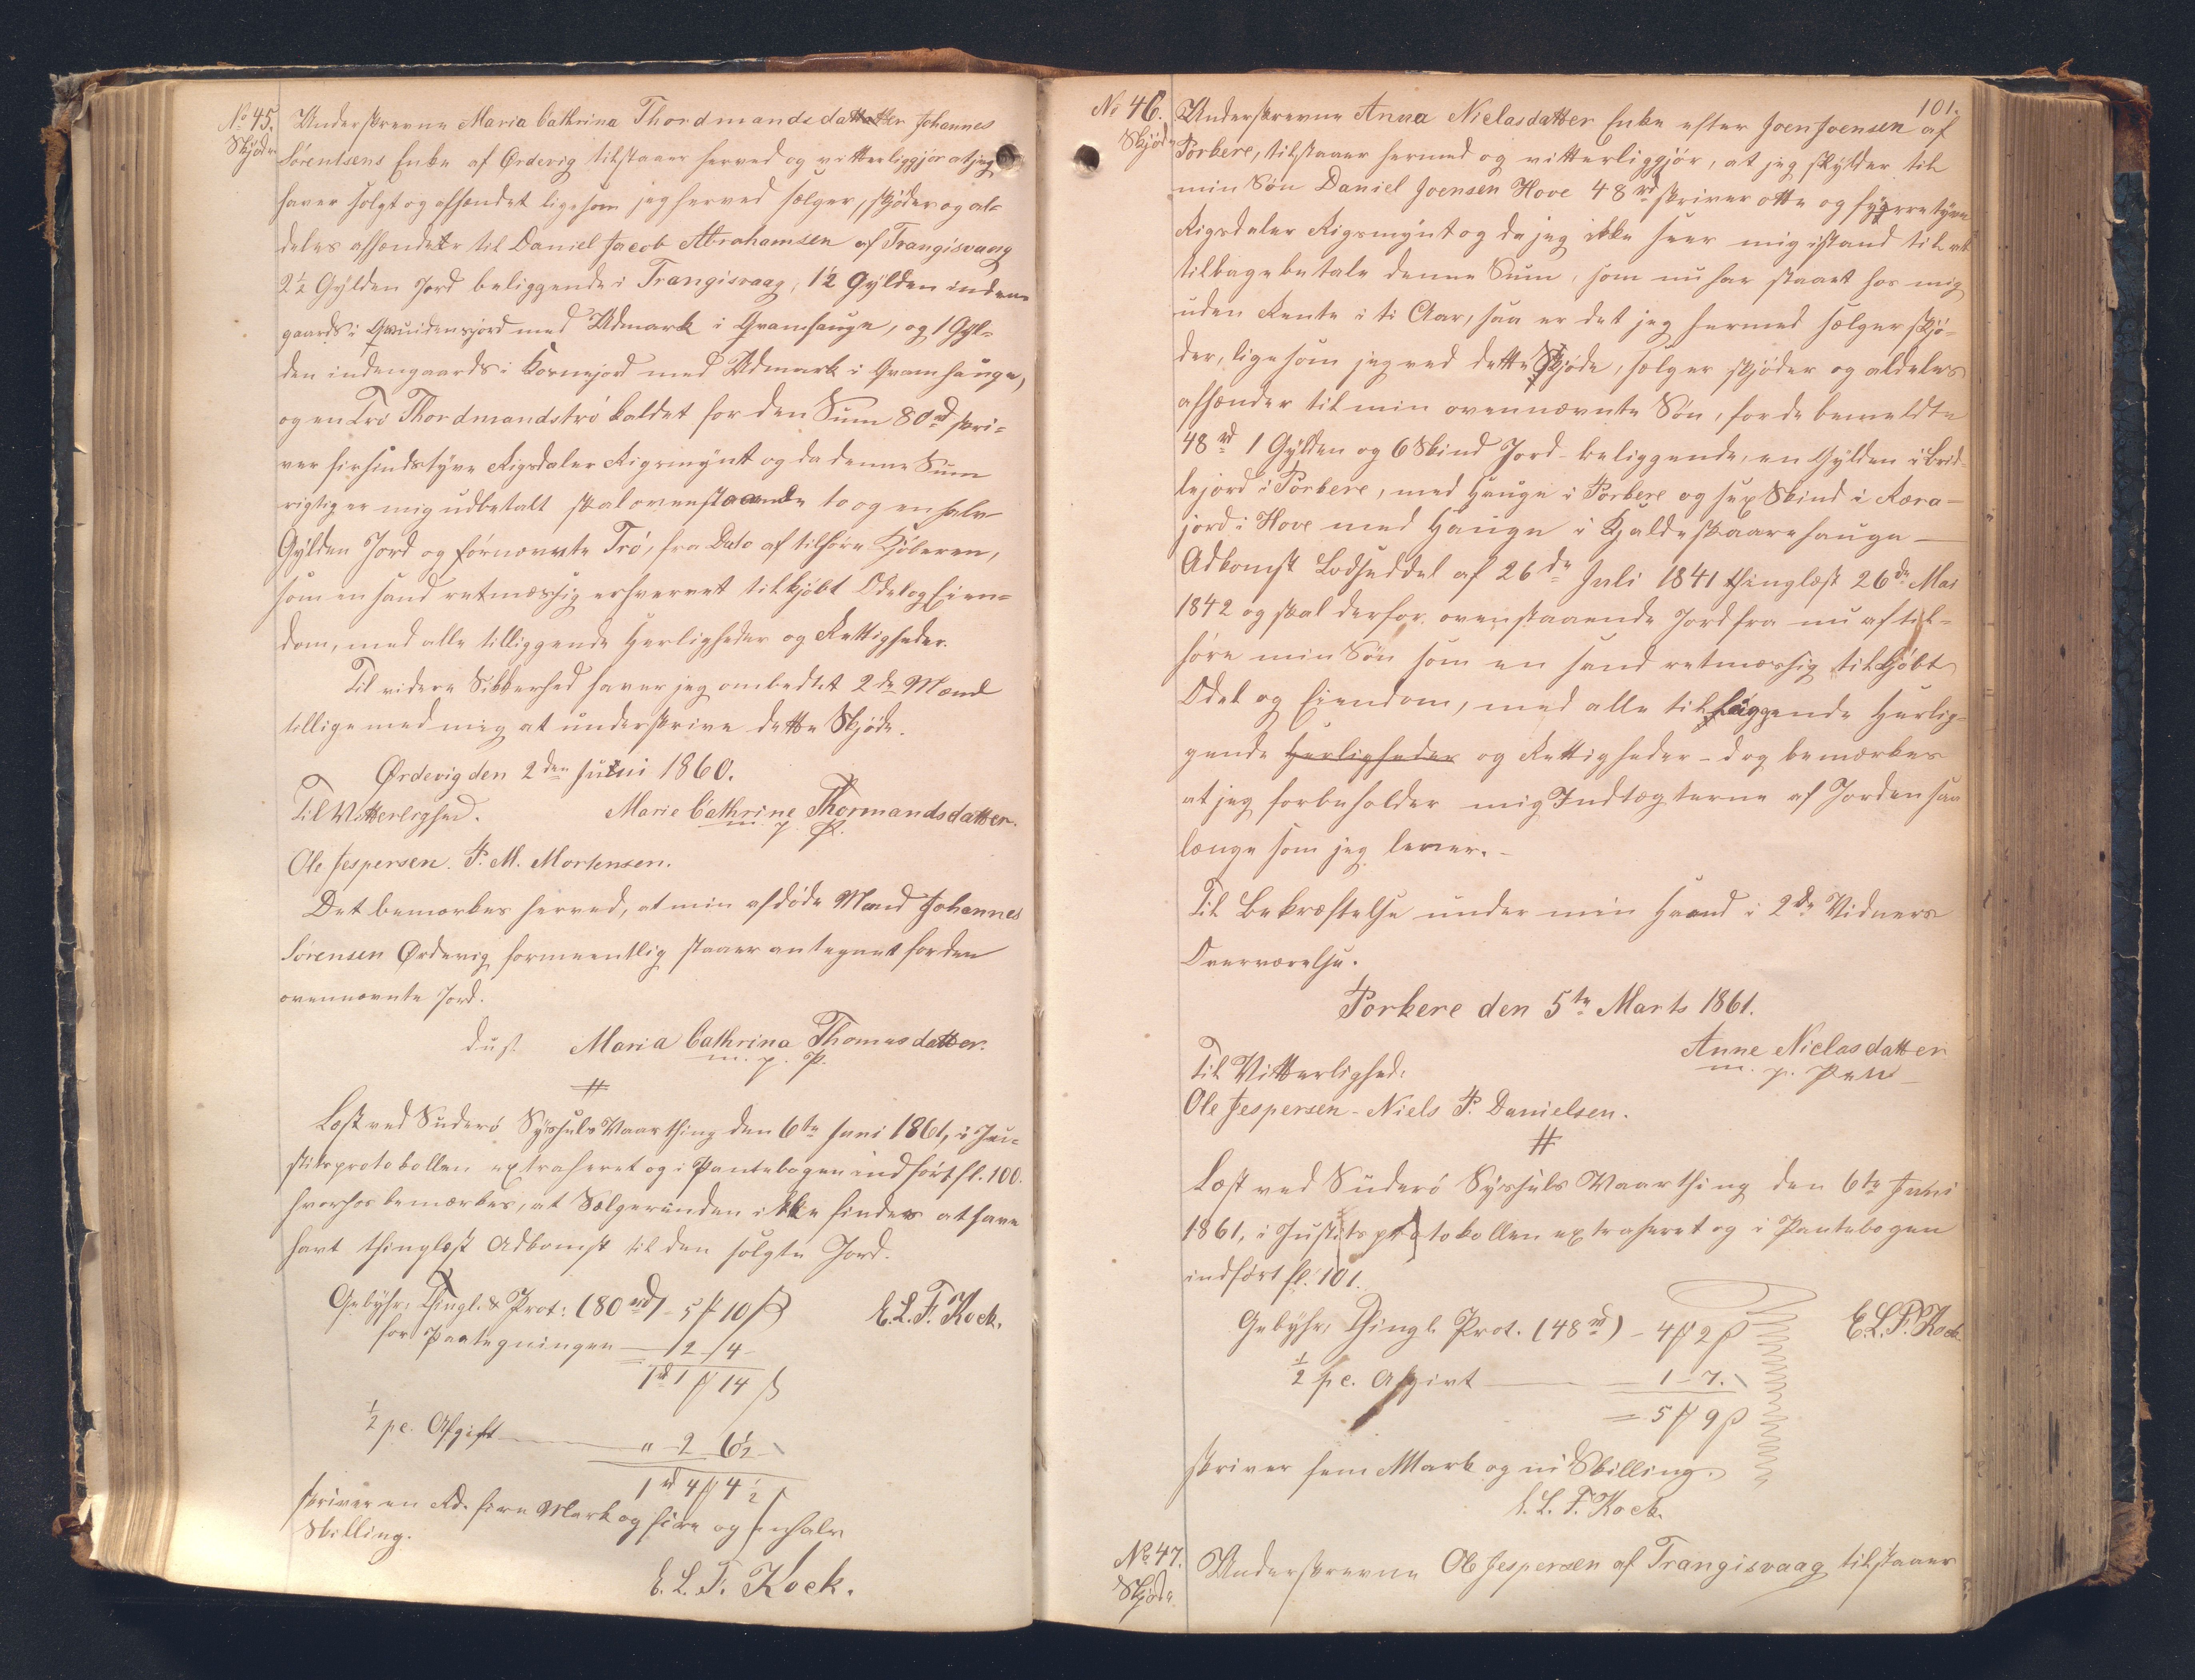 No 45.
Skjøde.
Underskrevne Maria Cathrina Thordmandsdattatter Johannes
Sørentsens Enke af Ørdevig tilstaaer herved og vitterliggjør at jeg
haver solgt og afhændet ligesom jeg herved sælger, skjøder og al-
deles afhændeter til Daniel Jacob Abrahamsen af Trangisvaag
2½ Gylden Jord beliggende i Trangisvaag, 1½ Gylden inden
gaards i Qvuidensjord med Udmark i Qvamhauge, og 1 Gyl-
den indengaards i Kornejord med Udmark i Qvamhauge,
og en Trö Thordmandströ kaldet for den Sum 80 rd skri-
ver firsindstyve Rigsdaler Rigsmynt og da denne Sum
rigtig er mig udbetalt skal ovenstaaende to og en halv
Gylden Jord og fornævnte Trö, fra Dato af tilhöre Kjöberen,
som en sand retmæssig erhvervet tilkjöbt Odel og Eien-
dom, med alle tilliggende Herligheder og Rettigheder.
Til videre Sikkerhed haver jeg ombedtet 2de Mænd
tillige med mig at underskrive dette Skjøde.
Ørdevig den 2den Juuni 1860.
Til Vitterlighed. Marie Cathrine Thormandsdatter.
m. p. P.
Ole Jespersen. P. M. Mortensen.
Det bemærkes herved, at min afdöde Mand Johannes
Sörensen Ørdevig formeentlig staaer antegnet for den
ovennævnte Jord.
dus. Maria Cathrina Thomasdatter.
m. p. P.
#
Læst ved Suderö Syssels Vaarthing den 6te Juni 1861, i Ju-
stitsprotokollen extraheret og i Pantebogen indfört fl. 100.
hvorhos bemærkes, at Sælgerinden ikke findes at have
havt thinglæst Adkomst til den solgte Jord.
Gebyhr, Thingl. & Prot: (80 rd) - 5 ℳ 10 ß
E. L. F. Kock.
for Paategningen — 12 - 4 -
1 rd 1 ℳ 14 ß
½ pc. Afgift — " 2 6½ -
1 rd 4 ℳ 4½ ß
skriver en Rd. fire Mark og fire og en halv
Skilling.
E. L. F. Kock.
101.
No 46.
Skjøde
Underskrevne Anna Niclasdatter Enke efter Joen Joensen af
Porkere, tilstaaer hermed og vitterliggjör, at jeg skylder til
min Sön Daniel Joensen Hove 48 rd skriver otte og fyrretyve
Rigsdaler Rigsmynt og da jeg ikke seer mig istand til at
tilbagebetale denne Sum, som nu har staaet hos mig
uden Rente i ti Aar, saa er det jeg hermed sælger skjö-
der, ligesom jeg ved dette Skjöde, sælger skjöder og aldeles
afhænder til min ovennævnte Sön, for de bemeldte
48 rd 1 Gylden og 6 Skind Jord beliggende, en Gylden i Brid-
lejord i Porkere, med Hauge i Porkere og sex Skind i Kæra-
jord i Hove med Hauge i Kjaldeskaarehauge —
Adkomst Lodseddel af 26de Juli 1841 thinglæst 26de Mai
1842 og skal derfor ovenstaaende Jord fra nu af til-
höre min Sön som en sand retmæssig tilkjöbt
Odel og Eiendom, med alle tilliggende Herlig-
gende Herligheder og Rettigheder - dog bemærkes
at jeg forbeholder mig Indtægterne af Jorden saa
længe som jeg lever. -
Til Bekræftelse under min Haand i 2de Vidners
Overværelse.
Porkere den 5te Marts 1861.
Anne Niclasdatter
m. p. Pen
Til Vitterlighed:
Ole Jespersen - Niels P. Danielsen.
#
Læst ved Suderö Syssels Vaarthing den 6te Juni
1861, i Justitsprotokollen extraheret og i Pantebogen
indfört fl. 101.
Gebyhr, Thingl. Prot. (48 rd) - 4 ℳ 2 ß
E. L. F. Kock.
½ pc. Afgivt — 1 - 7.
= 5 ℳ 9 ß
skriver fem Mark og ni Skilling.
E. L. F. Kock.
No 47.
Skjøde.
Underskrevne Ole Jespersen af Trangisvaag tilstaaer